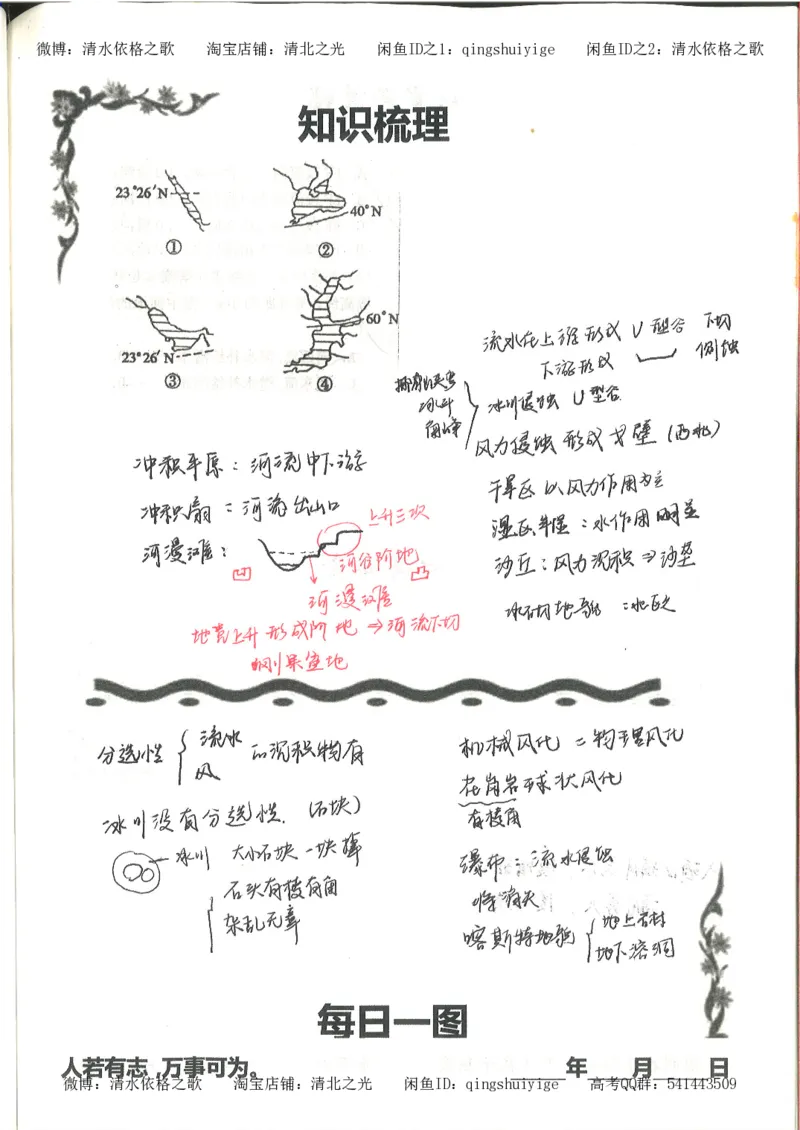 微博：清水依格之歌 淘宝店铺：清北之光 闲鱼ID之1：qingshuiyige 闲鱼ID之2：清水依格之歌
知识梳理
23°26′N
①
40°N
②
23°26′N
③
60°N
④
流水在上游形成 U型谷 下切
下游形成 侧蚀
冰斗
角峰
冰川侵蚀 U型谷
风力侵蚀 形成戈壁（西北）
干旱区 以风力作用为主
湿区半湿：水作用明显
沙丘：风力沉积⇒沙垄
冲积平原：河流中下游
冲积扇：河流出山口
河漫滩：
上升三次
河谷阶地
凹
凸
河漫滩
地壳上升形成阶地⇒河流下切
分选性 流水 的沉积物有
风
冰川没有分选性.（石块）
冰川 大小石块一块掉
石头有棱有角
杂乱无章
机械风化＝物理风化
花岗岩球状风化
有棱角
瀑布：流水侵蚀
消失
喀斯特地貌 地上石林
地下溶洞
每日一图
人若有志，万事可为。
年 月 日
微博：清水依格之歌 淘宝店铺：清北之光 闲鱼ID：qingshuiyige 高考QQ群：541443509